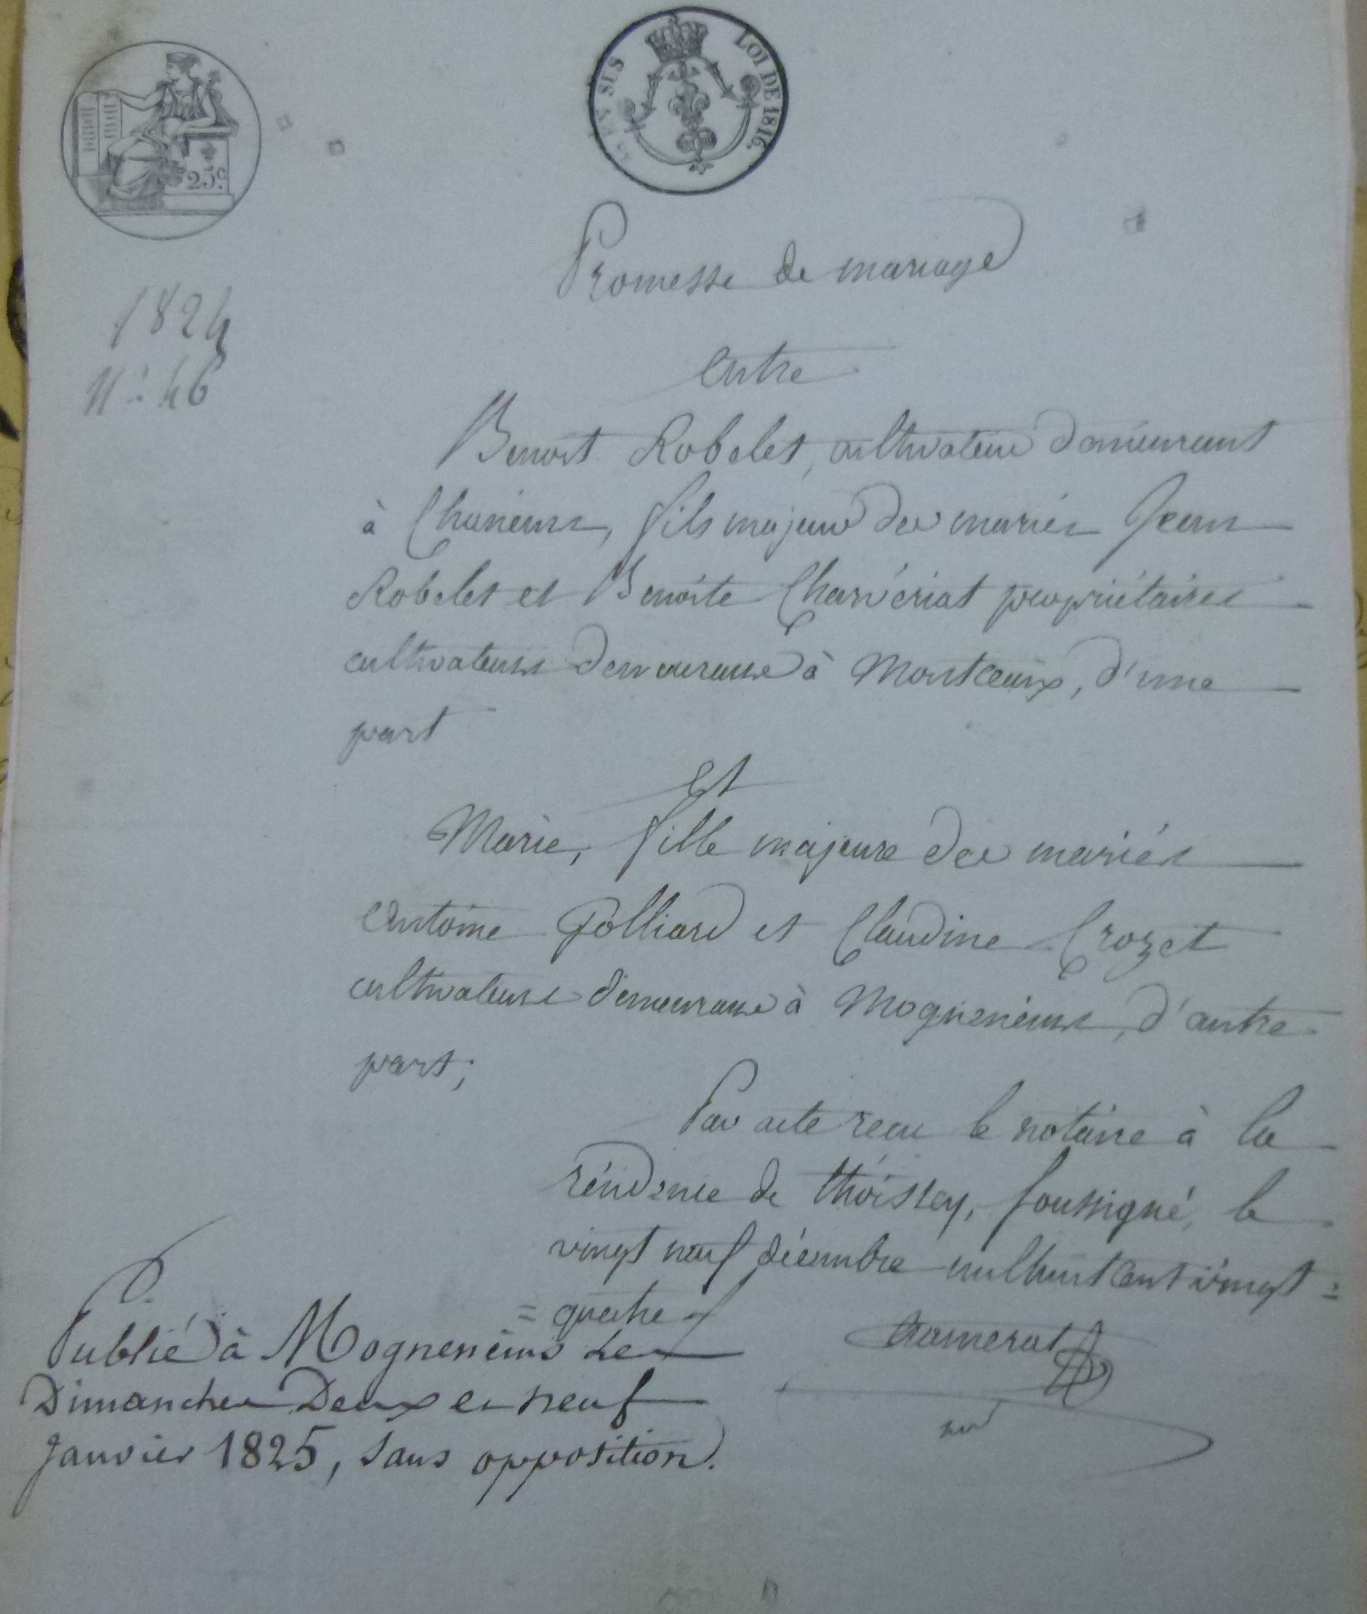 25c
LOI DE 1816.
1824
N.º 46
Promesse de mariage
entre
Benoit Robelet, cultivateur demeurant
à Chaneins, fils majeur des mariés Jean
Robelet et Benoite Charvériat propriétaires
cultivateurs demeurans à Montceaux, d'une
part
et
Marie, fille majeure des mariés
Antoine Golliard et Claudine Crozet
cultivateurs demeurans à Mogneneins, d'autre
part;
Par acte recu le notaire à la
résidence de Thoissey, soussigné, le
vingt neuf décembre mil huit cent vingt =
= quatre
Publié à Mogneneins les
Dimanches Deux et neuf
Janvier 1825, sans opposition.